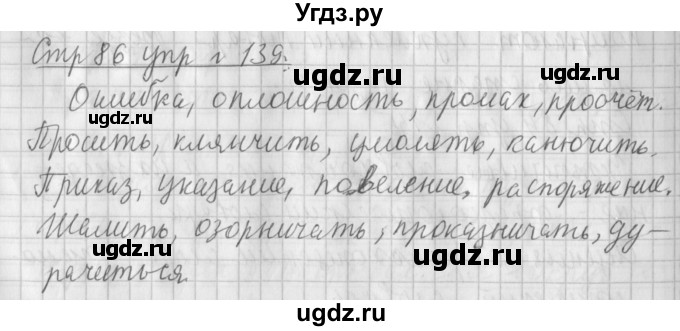 Угдз.ру
Стр 86 упр г 139.
ugdz.ru ugdz.ru
Ошибка, оплошность, промах, просчёт.
ugdz.ru
Просить, клянчить, умолять, канючить.
ugdz.ru
Приказ, указание, повеление, распоряжение.
ugdz.ru
Шалить, озорничать, проказничать, ду-
ugdz.ru ugdz.ru
рачиться.
ugdz.ru